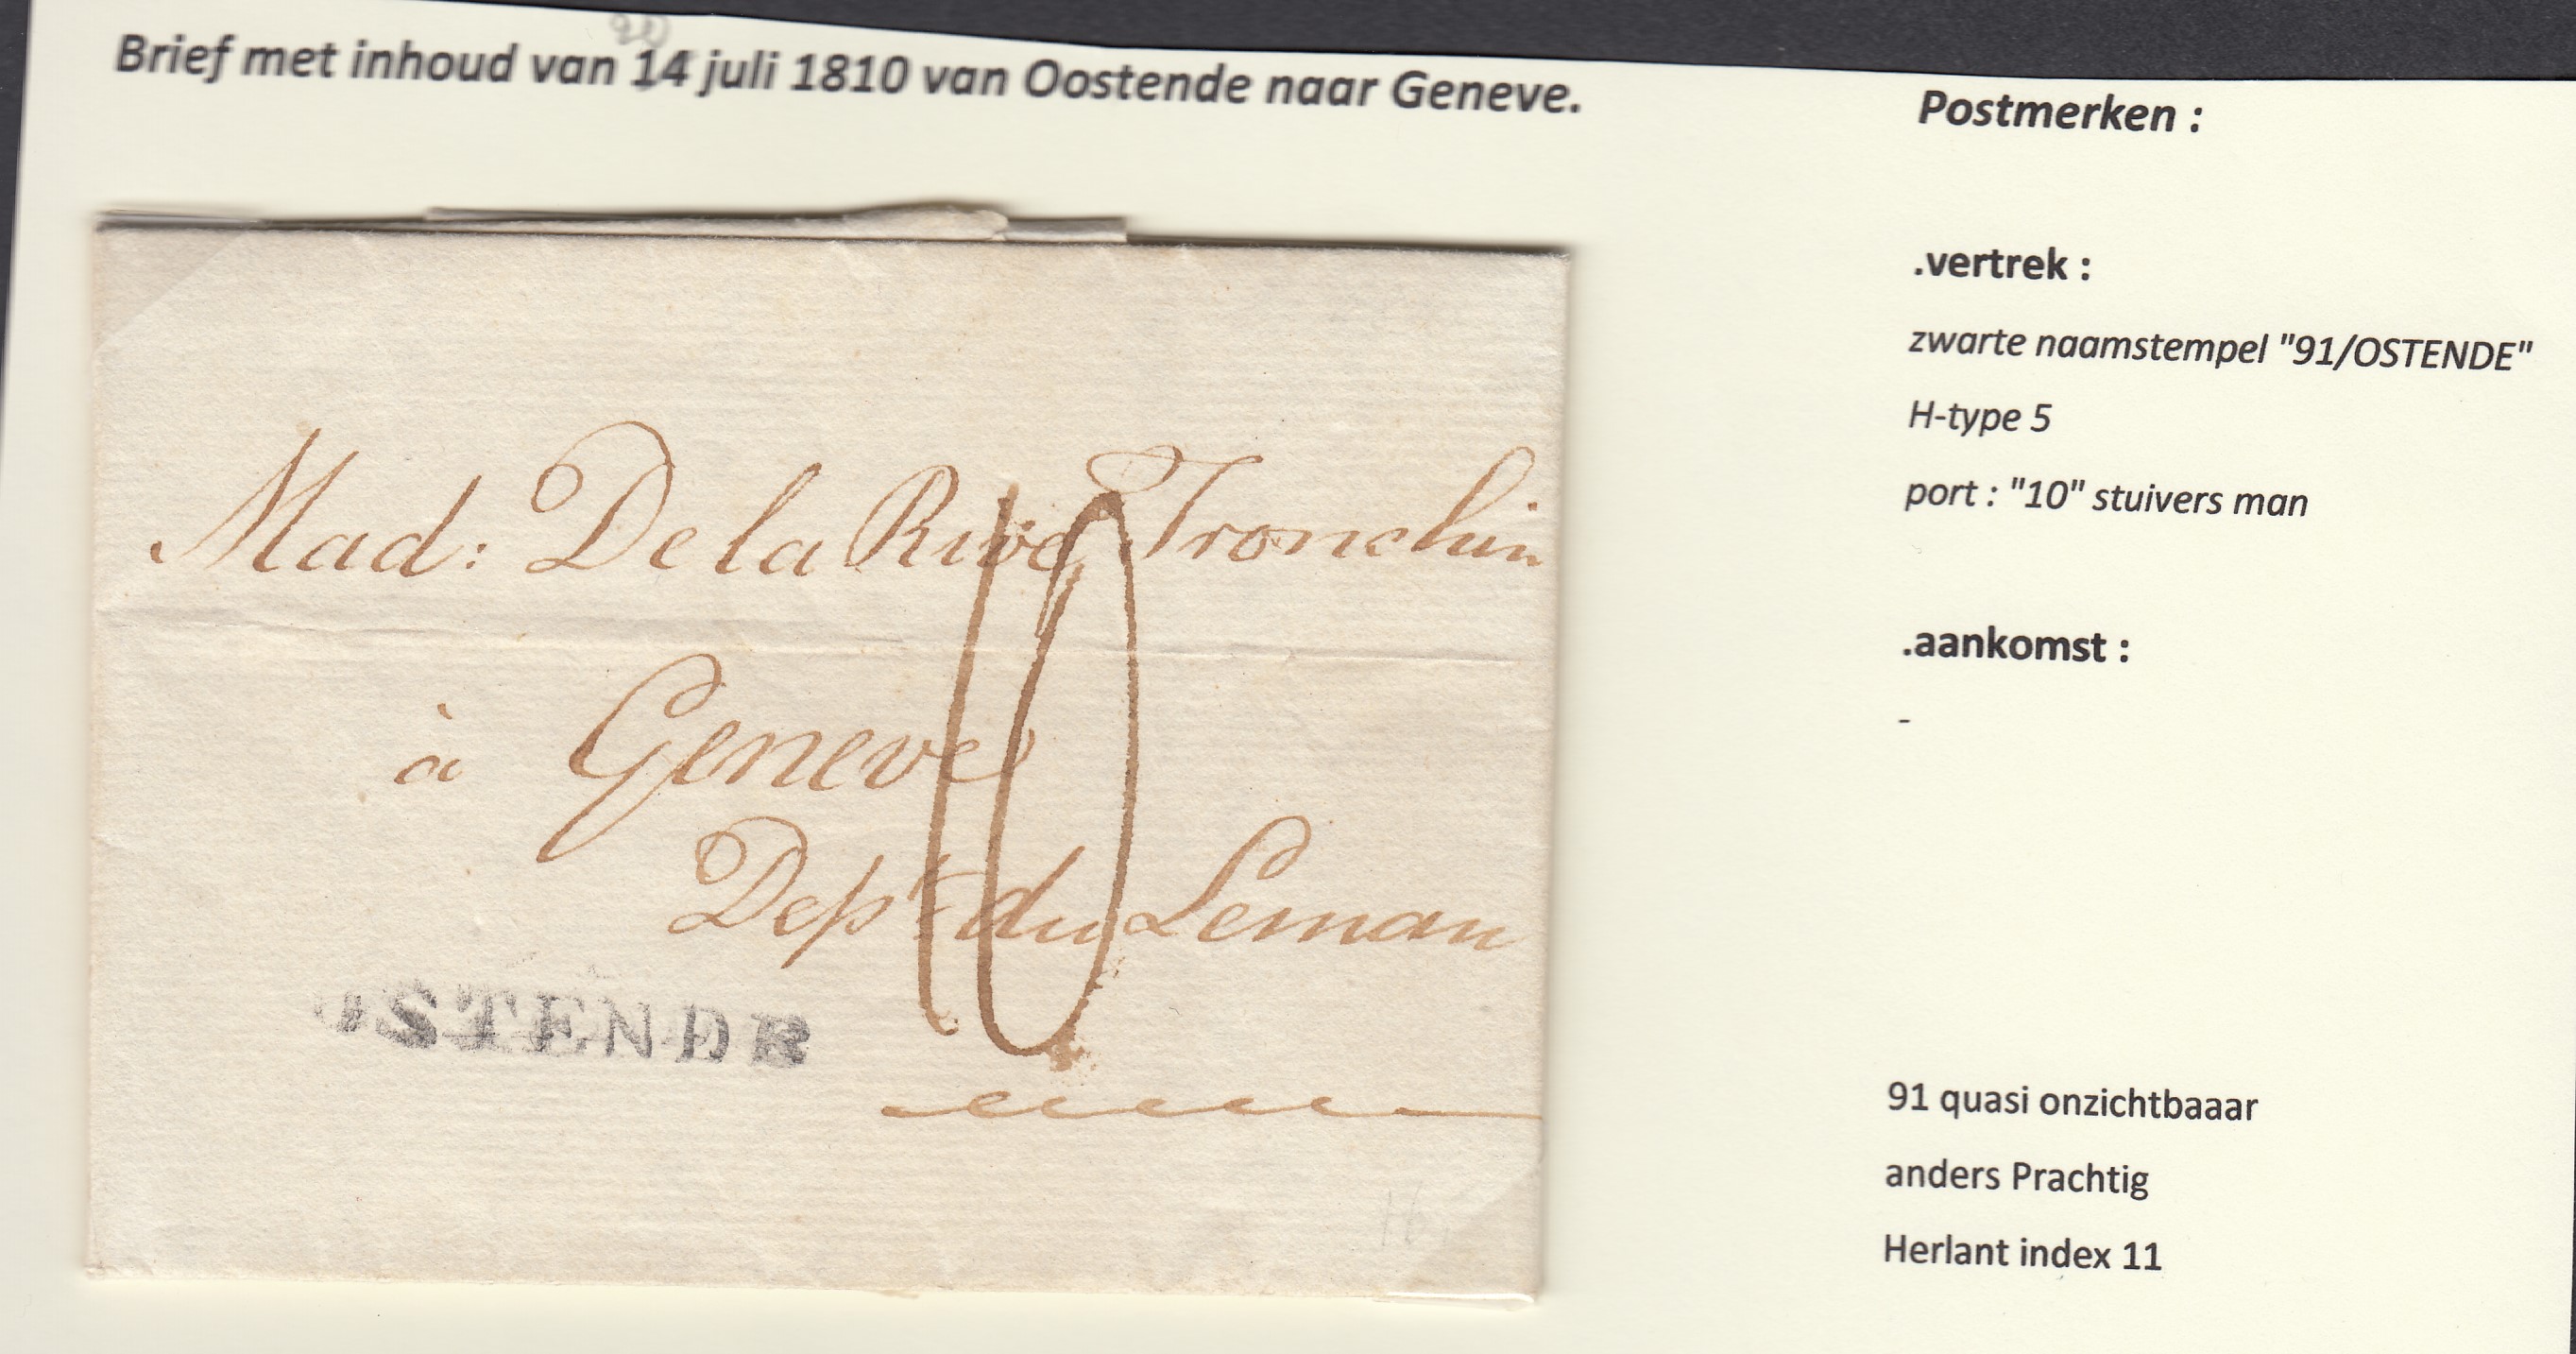 20
Brief met inhoud van 14 juli 1810 van Oostende naar Geneve.
Mad: De la Rive Tronchin
à Geneve
Dept du Leman
10
OSTENDE
16
Postmerken :
.vertrek :
zwarte naamstempel "91/OSTENDE"
H-type 5
port : "10" stuivers man
.aankomst :
-
91 quasi onzichtbaaar
anders Prachtig
Herlant index 11